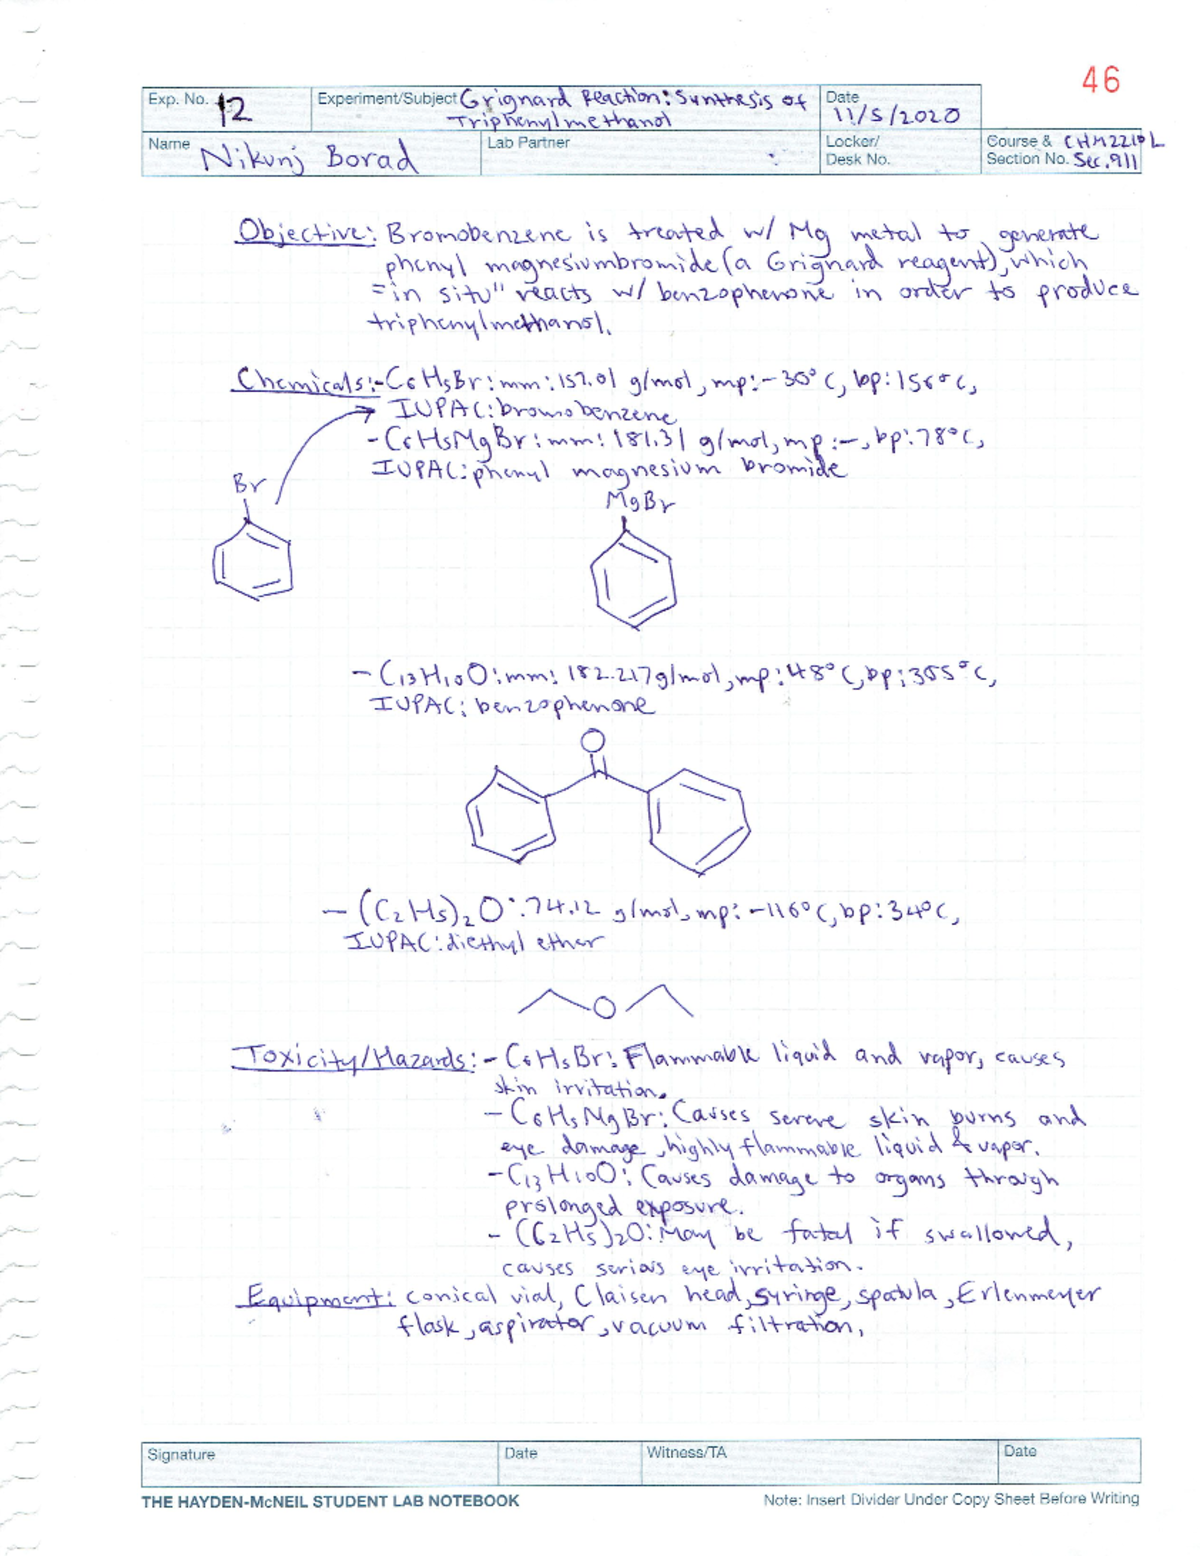 46
Exp. No. 12
Experiment/Subject Grignard Reaction: Synthesis of
Triphenylmethanol
Date 11/5/2020
Name Nikunj Borad
Lab Partner
Locker/
Desk No.
Course & CHM2210L
Section No. Sec. 911
Objective: Bromobenzene is treated w/ Mg metal to generate
phenyl magnesiumbromide (a Grignard reagent), which
"in situ" reacts w/ benzophenone in order to produce
triphenylmethanol.
Chemicals:- C6H5Br: mm: 157.01 g/mol, mp: -30°C, bp: 156°C,
IUPAC: bromobenzene
- C6H5MgBr: mm: 181.31 g/mol, mp: -, bp: 78°C,
IUPAC: phenyl magnesium bromide
Br
MgBr
- C13H10O: mm: 182.217 g/mol, mp: 48°C, bp: 305°C,
IUPAC: benzophenone
O
- (C2H5)2O: 74.12 g/mol, mp: -116°C, bp: 34°C,
IUPAC: diethyl ether
O
Toxicity/Hazards: - C6H5Br: Flammable liquid and vapor, causes
skin irritation.
- C6H5MgBr: Causes severe skin burns and
eye damage, highly flammable liquid & vapor.
- C13H10O: Causes damage to organs through
prolonged exposure.
- (C2H5)2O: May be fatal if swallowed,
causes serious eye irritation.
Equipment: conical vial, Claisen head, syringe, spatula, Erlenmeyer
flask, aspirator, vacuum filtration,
Signature
Date
Witness/TA
Date
THE HAYDEN-McNEIL STUDENT LAB NOTEBOOK
Note: Insert Divider Under Copy Sheet Before Writing